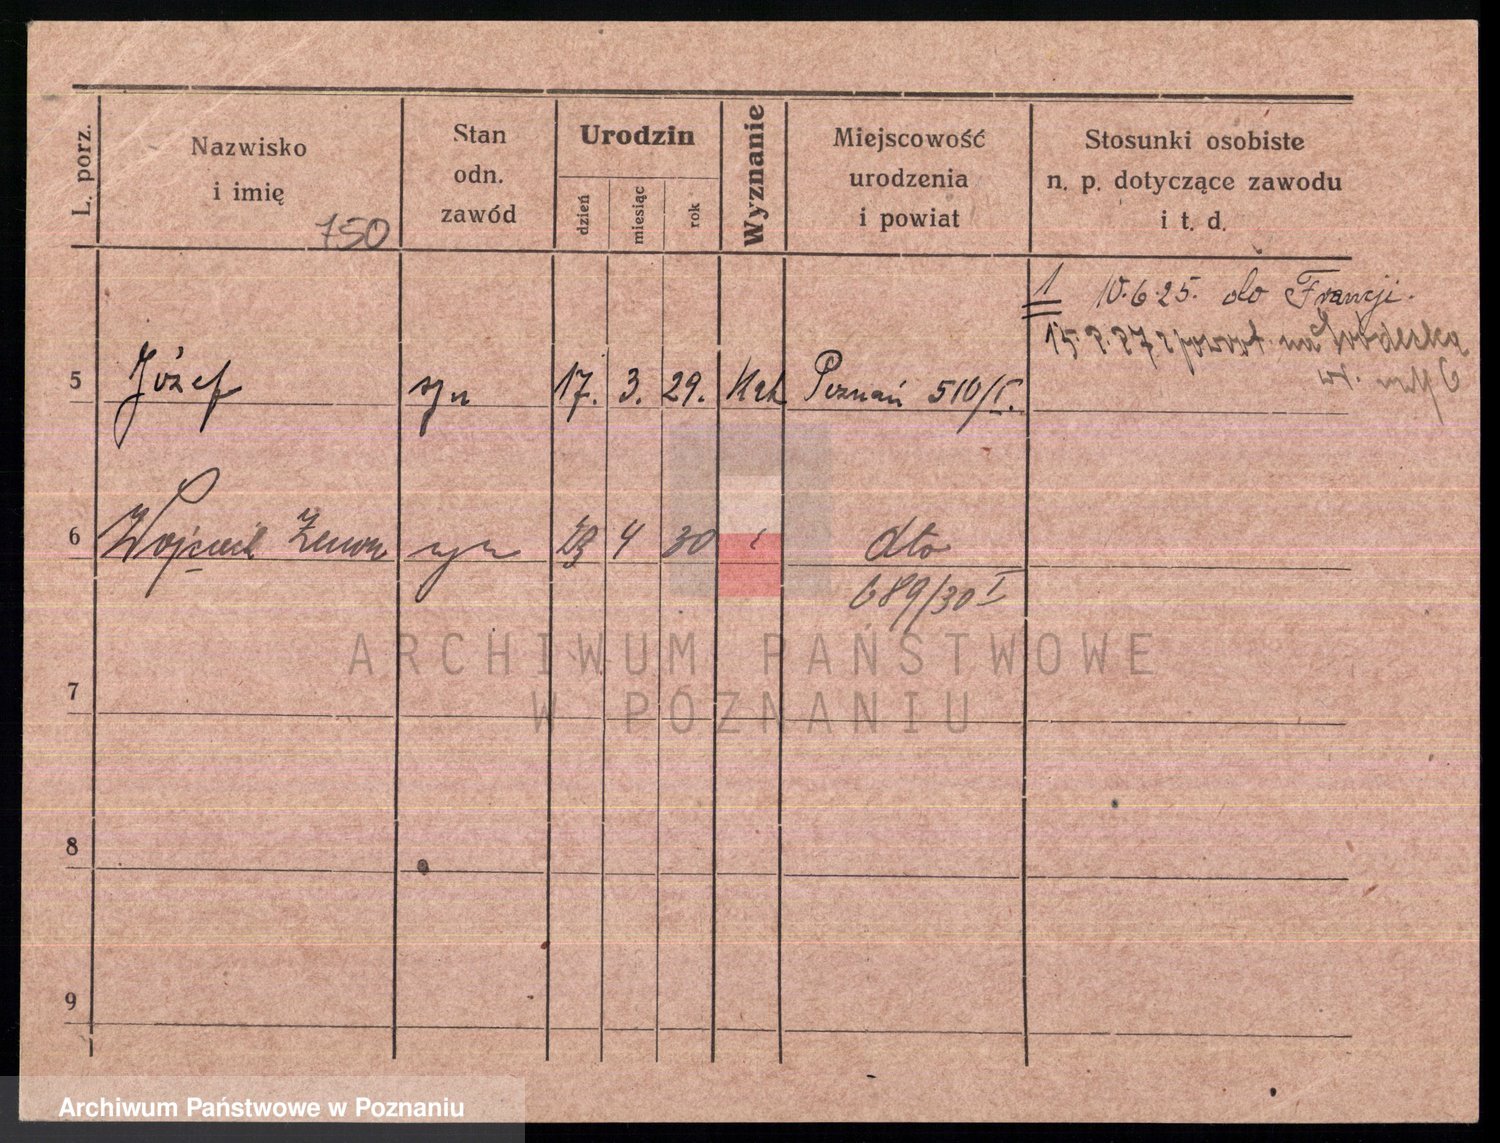 L. porz.
Nazwisko
i imię
750
Stan
odn.
zawód
Urodzin
dzień
miesiąc
rok
Wyznanie
Miejscowość
urodzenia
i powiat
Stosunki osobiste
n. p. dotyczące zawodu
i t. d.
1 10.6.25. do Francji.
5 Józef syn 17. 3. 29. Kat Poznań 510/I.
6 Wojciech Zenon syn 23 4 30 dto
689/30 I
7
8
9
ARCHIWUM PAŃSTWOWE
W POZNANIU
Archiwum Państwowe w Poznaniu